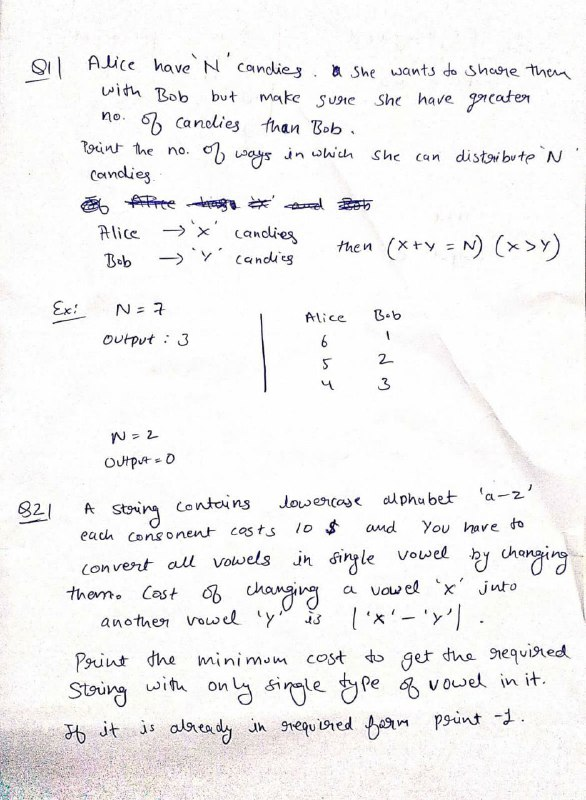 Q1| Alice have 'N' candies. She wants to share them
with Bob but make sure she have greater
no. of candies than Bob.
Print the no. of ways in which she can distribute 'N'
candies.
Alice → 'X' candies
Bob → 'Y' candies then (X+Y = N) (X>Y)
Ex: N = 7
Output : 3
Alice Bob
6 1
5 2
4 3
N = 2
Output = 0
Q2| A string contains lowercase alphabet 'a-z'
each consonent costs 10 $ and You have to
convert all vowels in single vowel by changing
them. Cost of changing a vowel 'x' into
another vowel 'y' is |'x'-'y'|.
Print the minimum cost to get the required
String with only single type of vowel in it.
If it is already in required form print -1.